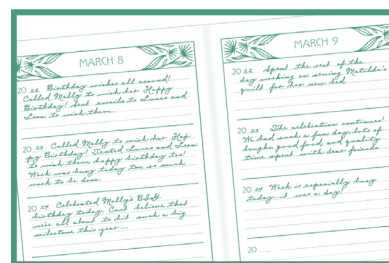 MARCH 8
20 22 Birthday wishes all around!
Called Molly to wish her Happy
Birthday! Sent emails to Lucas and
to wish them
20 23 Called Molly to wish her Hap-
py Birthday! Texted Lucas and
to wish them happy birthday too!
Work was busy today too, so much
work to be done.
20 24 Celebrated Molly's B-day
birthday today. Can't believe that
we're all about to hit such a big
milestone this year...
MARCH 9
20 22 Spent the rest of the
day working on sewing Matilda's
quilt for her new bed.
20 23 The celebration continues!
We had such a fun day, lots of
laughs, good food, and quality
time spent with dear friends.
20 24 Work is especially busy
today...it was a day!
20